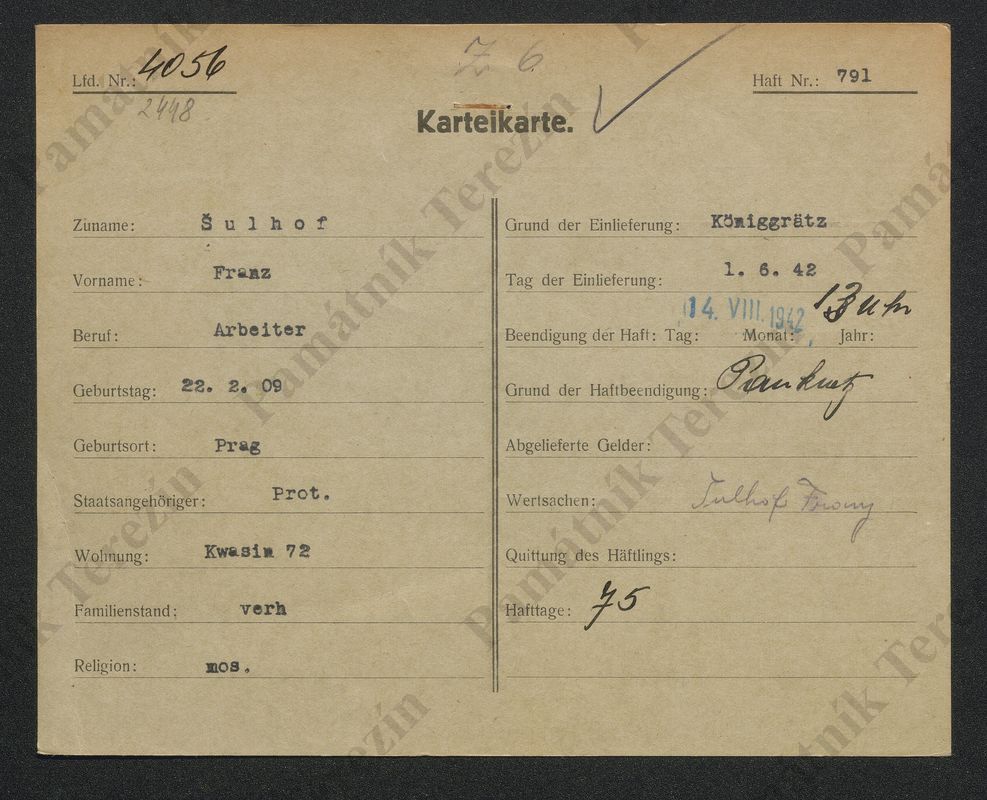 Lfd. Nr.: 4056
2448
Z 6
Haft Nr.: 791
Karteikarte.
Zuname: Šulhof
Vorname: Franz
Beruf: Arbeiter
Geburtstag: 22. 2. 09
Geburtsort: Prag
Staatsangehöriger: Prot.
Wohnung: Kwasin 72
Familienstand: verh
Religion: mos.
Grund der Einlieferung: Königgrätz
Tag der Einlieferung: 1. 6. 42
14. VIII. 1942 13 Uhr
Beendigung der Haft: Tag: Monat: Jahr:
Grund der Haftbeendigung: Pankratz
Abgelieferte Gelder:
Wertsachen: Šulhof Franz
Quittung des Häftlings:
Hafttage: 75
Památník Terezín